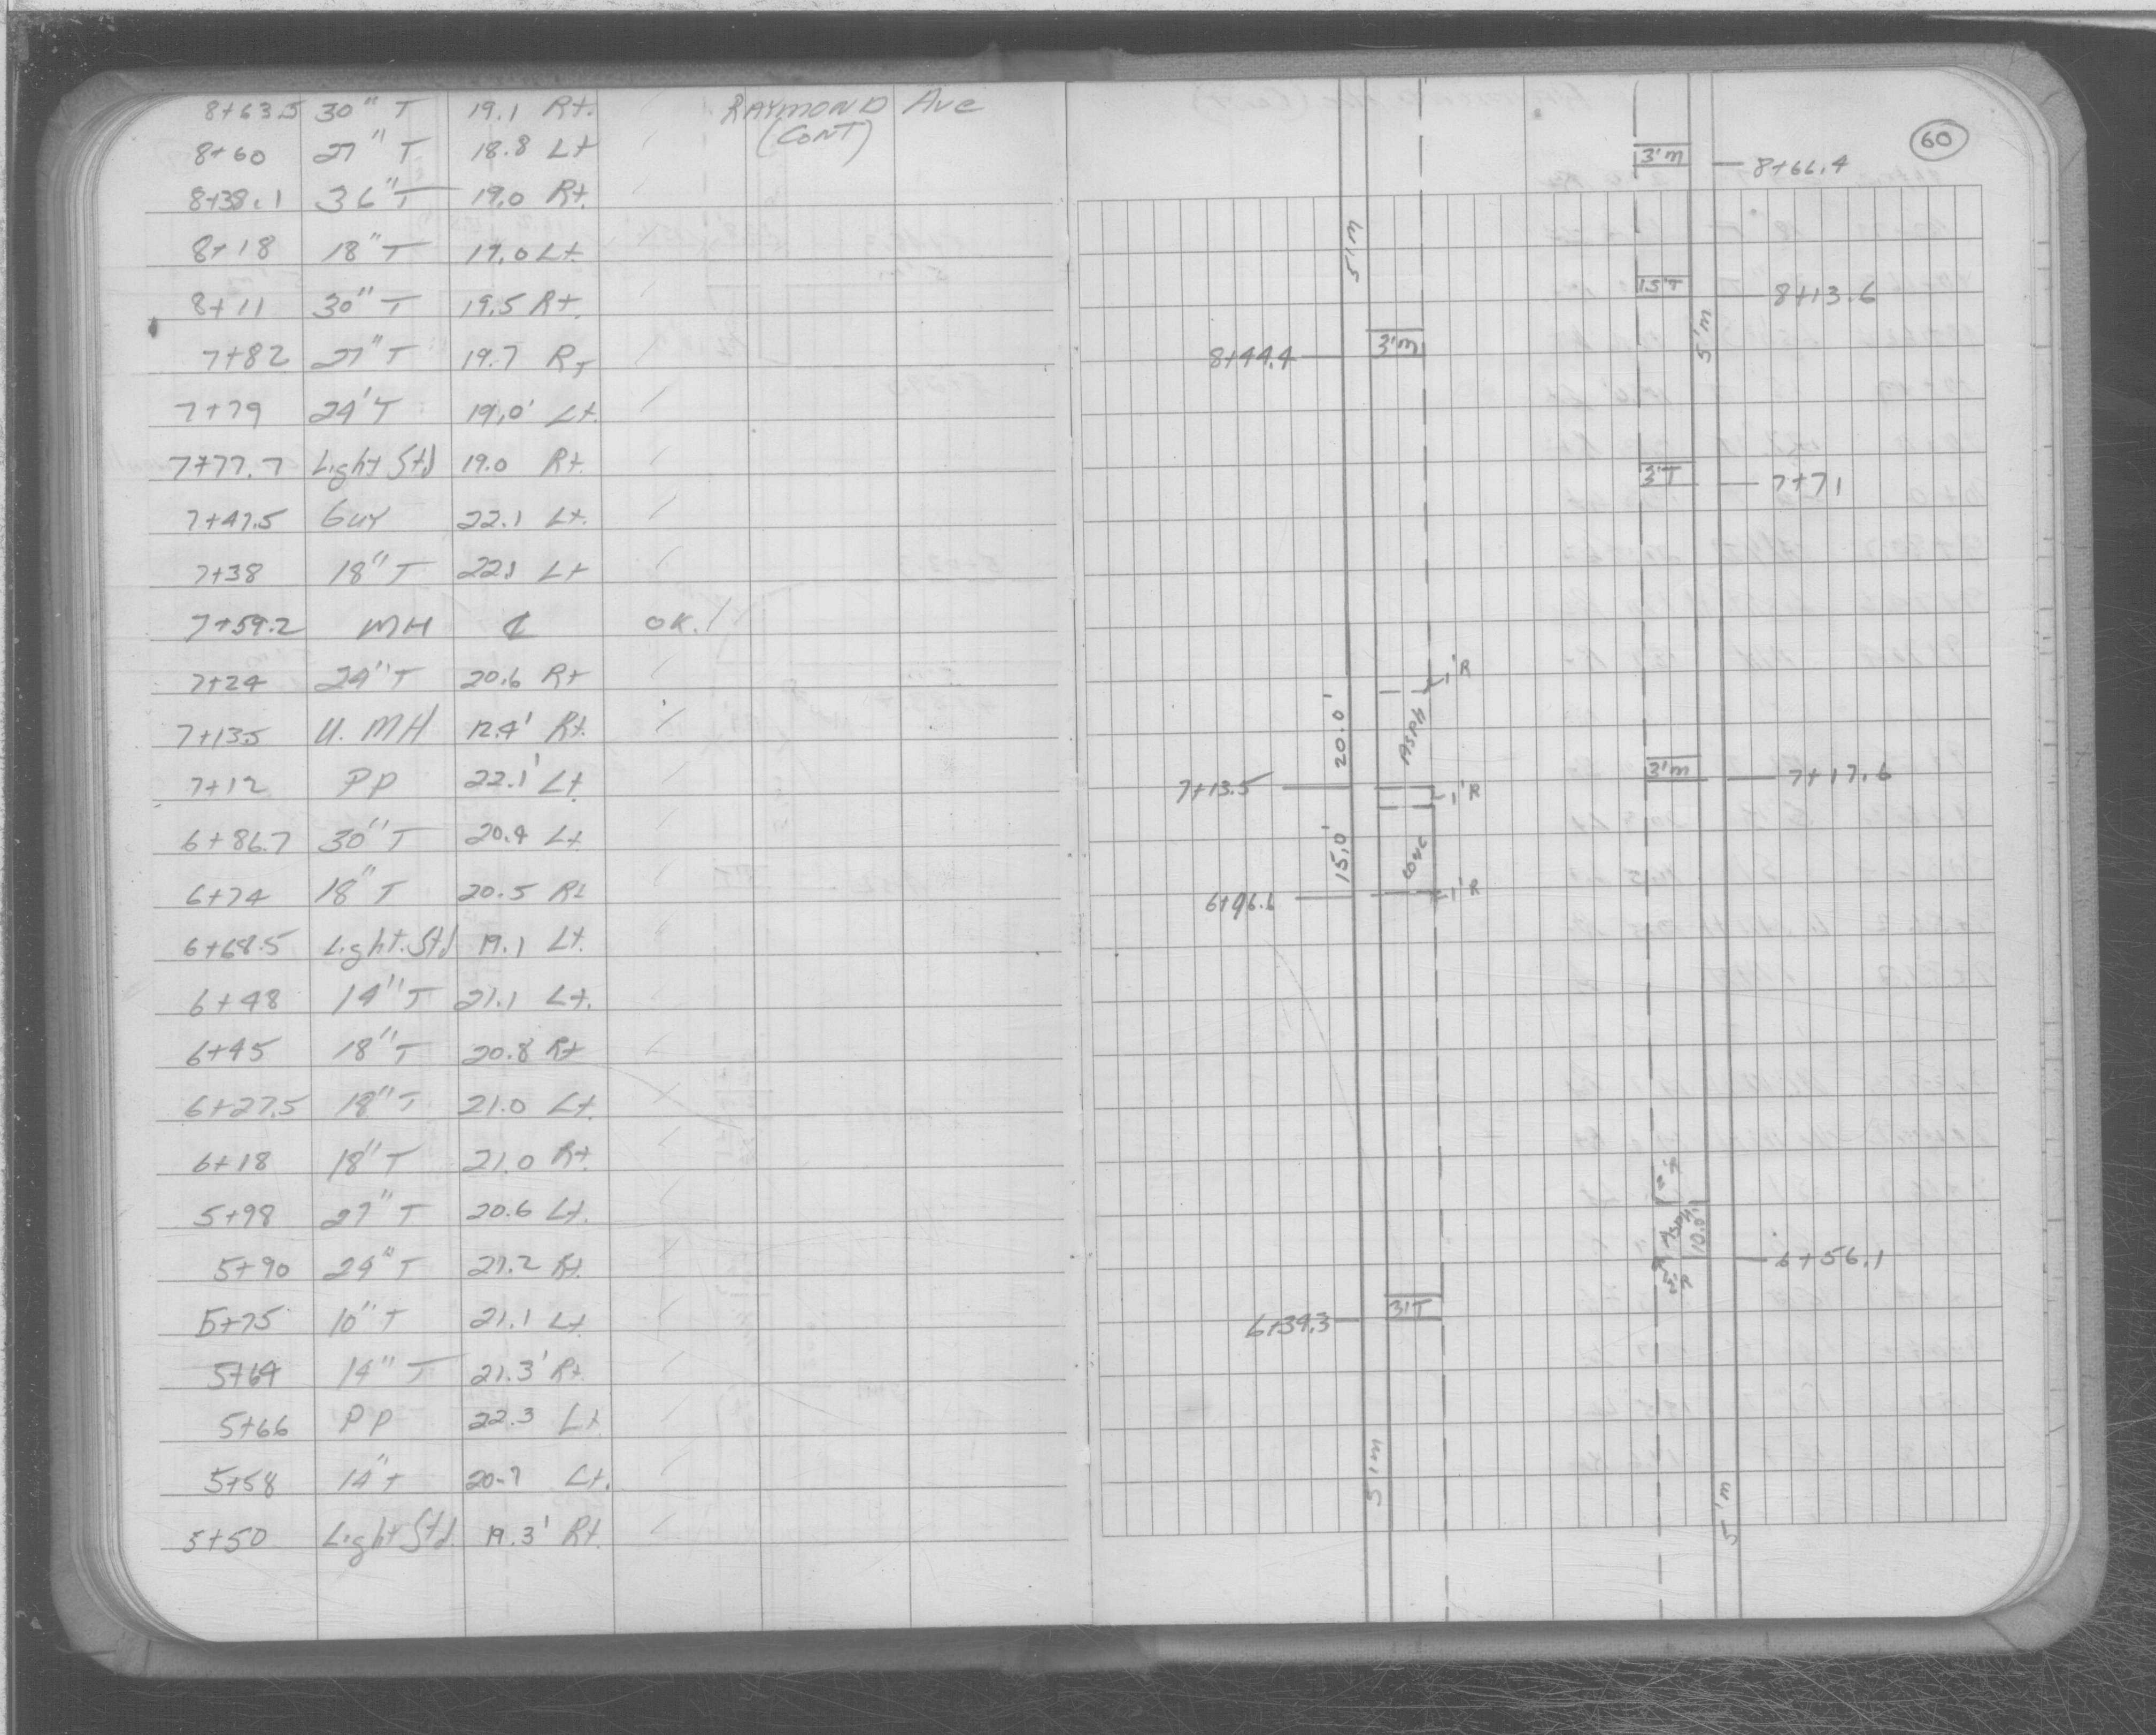 8+63.5 30" T 19.1 Rt. RAYMOND Ave
(CONT)
8+60 27" T 18.8 Lt
8+38.1 36" T 19.0 Rt.
8+18 18" T 19.0 Lt.
8+11 30" T 19.5 Rt.
7+82 27" T 19.7 RT
7+79 24' T 19.0' Lt.
7+77.7 Light Std 19.0 Rt.
7+47.5 Guy 22.1 Lt.
7+38 18" T 22.1 Lt
7+59.2 MH ℄ OK.
7+24 24" T 20.6 Rt
7+13.5 U. MH 12.4' Rt.
7+12 PP 22.1' Lt
6+86.7 30" T 20.4 Lt
6+74 18" T 20.5 Rt
6+68.5 Light. Std 19.1 Lt.
6+48 14" T 21.1 Lt.
6+45 18" T 20.8 Rt
6+27.5 18" T 21.0 Lt.
6+18 18" T 21.0 Rt.
5+98 27" T 20.6 Lt.
5+90 24" T 21.2 Rt.
5+75 10" T 21.1 Lt
5+64 14" T 21.3' Rt.
5+66 PP 22.3 Lt
5+58 14" T 20.7 Lt.
5+50 Light Std. 19.3' Rt.
60
3'M 8+66.4
5'M
15'T 8+13.6
5'M
8+44.4 3'M
3'T 7+71
1'R
20.0' Asph
3'M 7+17.6
7+13.5 1'R
15.0' Conc
6+96.6 1'R
Asph
10.0'
6+56.1
2'R
6+39.3 3'T
5'M
5'M